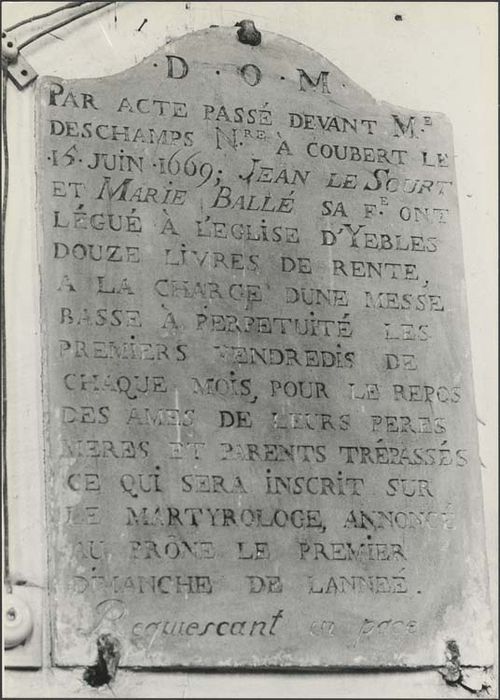 · D · O · M ·
PAR ACTE PASSÉ DEVANT M.E
DESCHAMPS N.RE À COUBERT LE
·15· JUIN ·1669; JEAN LE SOURT
ET MARIE BALLÉ SA F.E ONT
LÉGUÉ À L'EGLISE D'YEBLES
DOUZE LIVRES DE RENTE,
A LA CHARGE DUNE MESSE
BASSE À PERPETUITÉ LES
PREMIERS VENDREDIS DE
CHAQUE MOIS, POUR LE REPOS
DES AMES DE LEURS PERES
MERES ET PARENTS TRÉPASSÉS
CE QUI SERA INSCRIT SUR
LE MARTYROLOGE, ANNONCÉ
AU PRÔNE LE PREMIER
DIMANCHE DE LANNEÉ.
Requiescant in pace